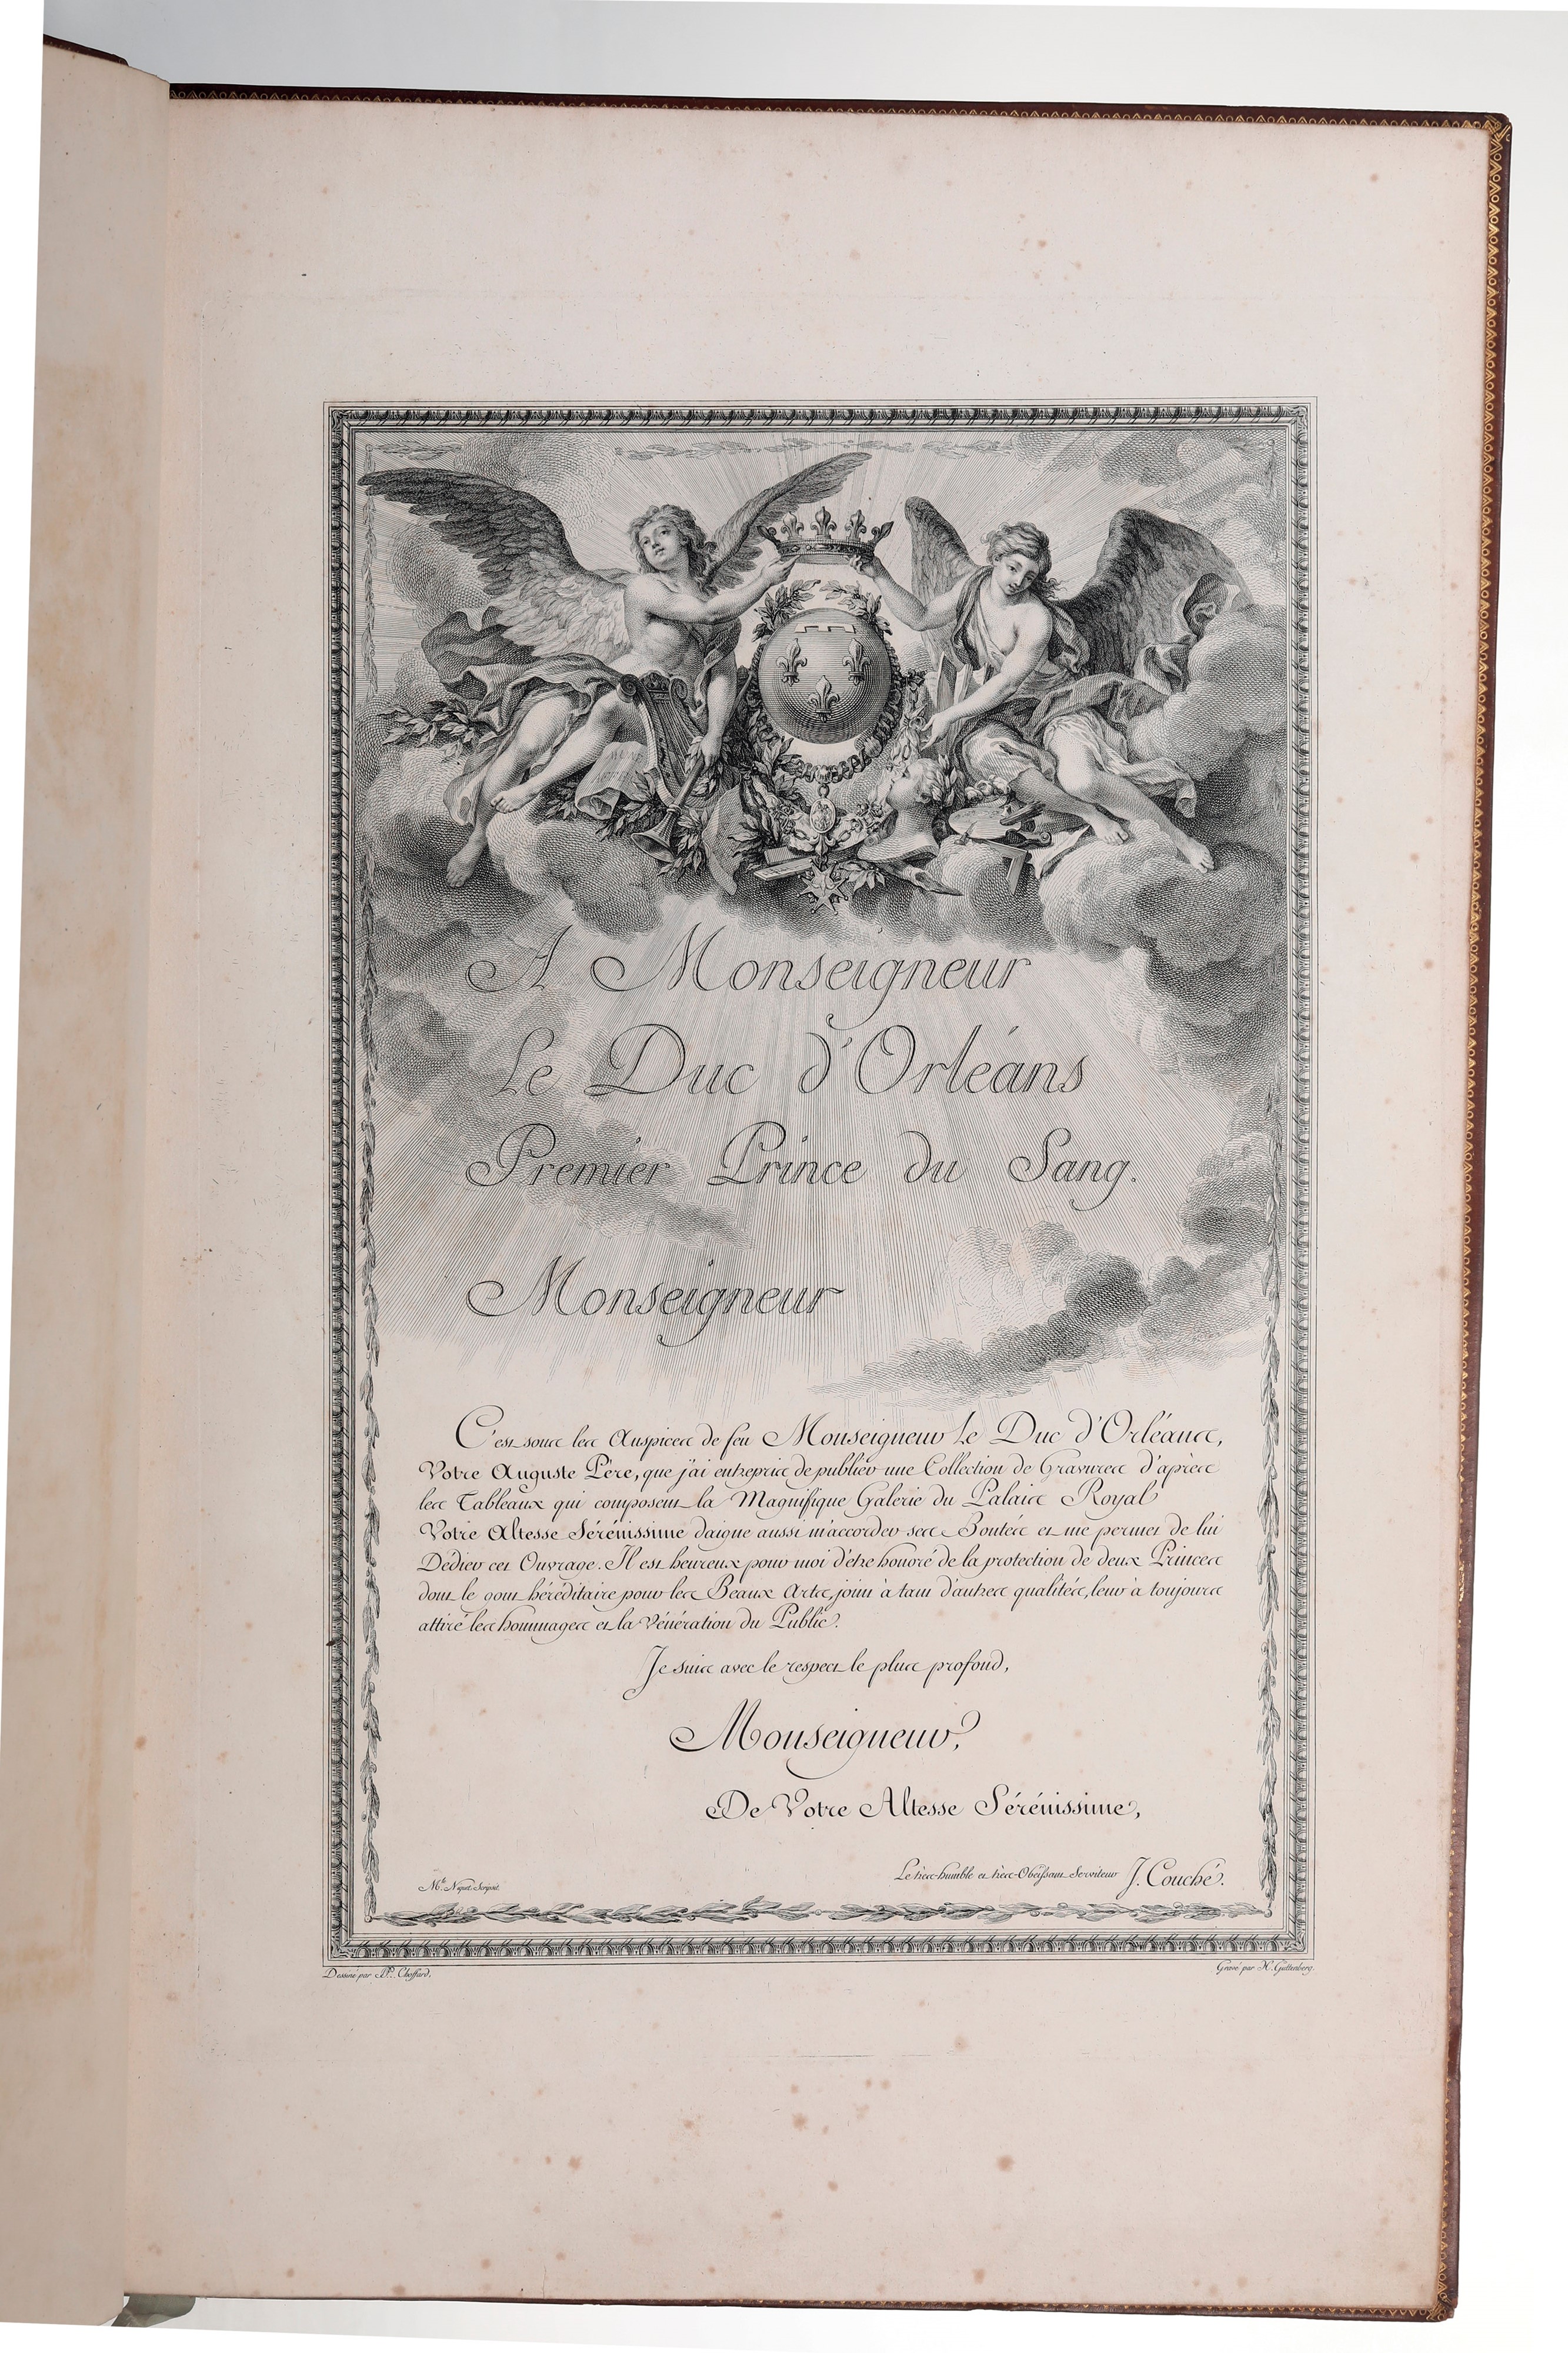 A Monseigneur
Le Duc d'Orléans
Premier Prince du Sang.
Monseigneur
C'est sous les Auspices de feu Monseigneur Le Duc d'Orléans,
Votre Auguste Père, que j'ai entrepris de publier une Collection de Gravures d'après
les Tableaux qui composent la Magnifique Galerie du Palais Royal
Votre Altesse Sérénissime daigne aussi m'accorder ses Bontés et me permet de lui
Dédier cet Ouvrage. Il est heureux pour moi d'être honoré de la protection de deux Princes
dont le gout héréditaire pour les Beaux Arts, joint à tant d'autres qualités, leur à toujours
attiré les hommages et la Vénération du Public.
Je suis avec le respect le plus profond,
Monseigneur,
De Votre Altesse Sérénissime,
Le très-humble et très-Obéissant Serviteur J. Couché.
Scripsit.
Dessiné par P.P. Choffard.
Gravé par H. Guttenberg.